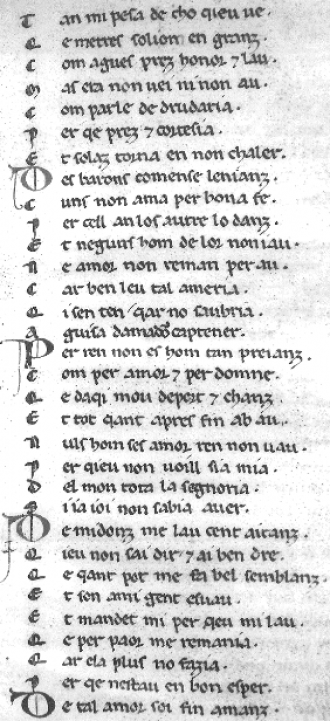 T an mi pesa de cho qieu ue.
Q e metres solion en granz.
C om agues prez honor ⁊ lau.
M as era non uei ni non au.
C om parle de drudaria.
P er qe prez ⁊ cortesia.
E t solaz torna en non chaler.
D es barons comense lenianz.
C uns non ama per bona fe.
P er cell an los autre lo danz.
E t neguns hom de lor non iau.
N e amor non reman per au.
C ar ben leu tal ameria.
Q i sen ten qar no saubria.
A guisa damador captener.
P er ren non es hom tan preianz.
C om per amor ⁊ per domne.
Q e daqi mou deport ⁊ chanz.
E t tot qant apres fin ab au.
N uls hom ses amor ren non uau.
P er qieu non uoill sia mia.
D el mon tota la segnoria.
S i ia ioi non sabia auer.
D e midonz me lau cent aitanz.
Q ieu non sai dir ⁊ ai ben dre.
Q e qant pot me fa bel semblanz.
E t son ami gent esuau.
E t mandet mi per qeu mi lau.
Q e per paor me remania.
Q ar ela plus no fazia.
P er qe nestau en bon esper.
D e tal amor soi fin amanz.